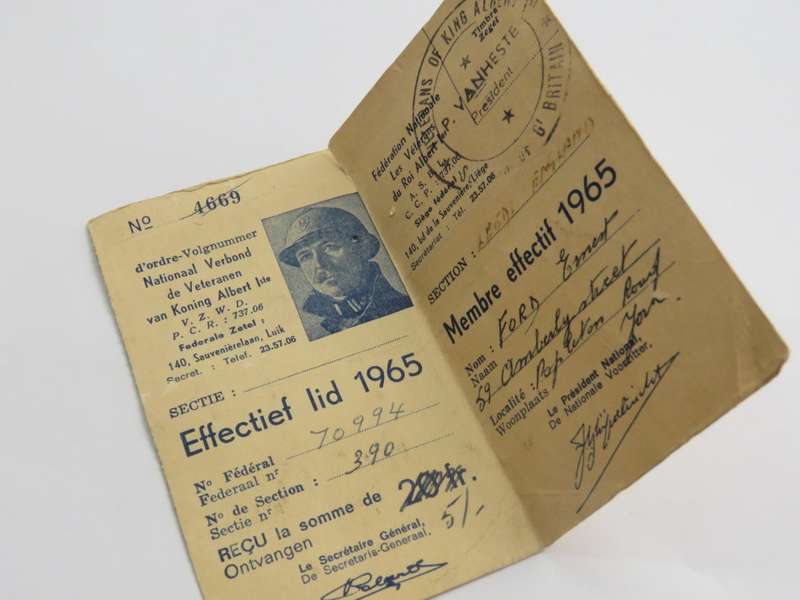 No 4669
d'ordre-Volgnummer
Nationaal Verbond
de Veteranen
van Koning Albert Iste
V. Z. W. D.
P. C. R. : 737.06
Federale Zetel :
140, Sauvenièrelaan, Luik
Secret. : Telef. 23.57.06
SECTIE :
Effectief lid 1965
No Fédéral 70994
Federaal nr
No de Section : 390
Sectie nr
REÇU la somme de
Ontvangen 5/-
Le Secrétaire Général,
De Secretaris-Generaal,
Timbre
Zegel
OF KING ALBERT
Gt BRITAIN
P. VANHESTE
President
Fédération Nationale
Les Vétérans
du Roi Albert Ier
A. S. B. L.
C. C. P. 737.06
Siège fédéral
140, bd de la Sauvenière, Liége
Secrétariat : Tel. 23.57.06
SECTION : ENGLAND
Membre effectif 1965
Nom : FORD Ernest
Naam
59 Amberly street
Localité : Road
Woonplaats York.
Le Président National,
De Nationale Voorzitter,